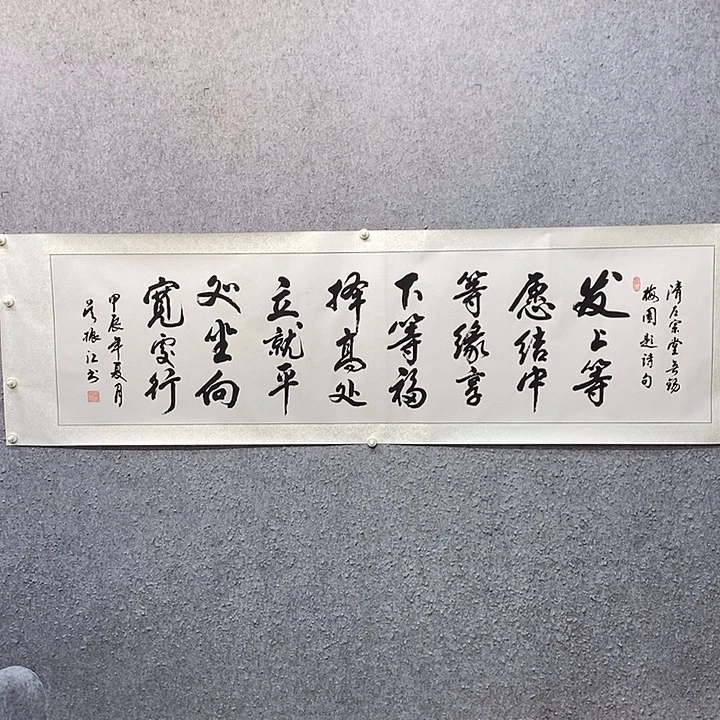 清左宗堂无锡
梅园题诗句
发上等
愿结中
等缘享
下等福
择高处
立就平
处坐向
宽处行
甲辰年夏月
吴振江书